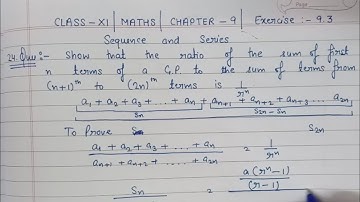 CLASS-XI | MATHS | CHAPTER-9 | Exercise :- 9.3
Sequence and Series
24. Que :- Show that the ratio of the sum of first
n terms of a G.P. to the sum of terms from
(n+1)ᵗʰ to (2n)ᵗʰ terms is 1/rⁿ
a₁ + a₂ + a₃ + ... + aₙ + aₙ₊₁ + aₙ₊₂ + aₙ₊₃ ... a₂ₙ
Sₙ S₂ₙ - Sₙ
To Prove Sₙ S₂ₙ
(a₁ + a₂ + a₃ + ... + aₙ)/(aₙ₊₁ + aₙ₊₂ + ... + a₂ₙ) = 1/rⁿ
Sₙ = a(rⁿ-1)/(r-1)